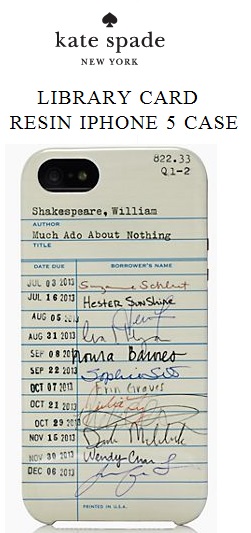 kate spade
NEW YORK
LIBRARY CARD
RESIN IPHONE 5 CASE
822.33
Q1-2
Shakespeare, William
AUTHOR
Much Ado About Nothing
TITLE
DATE DUE BORROWER'S NAME
JUL 03 2013
JUL 16 2013 Hester Sunshine
AUG 05 2013
AUG 31 2013
SEP 08 2013 Norma Barnes
SEP 22 2013 Sophia
OCT 07 2013 Erin Graves
OCT 21 2013
OCT 29 2013
NOV 15 2013
NOV 30 2013 Wendy
DEC 06 2013
PRINTED IN U.S.A.